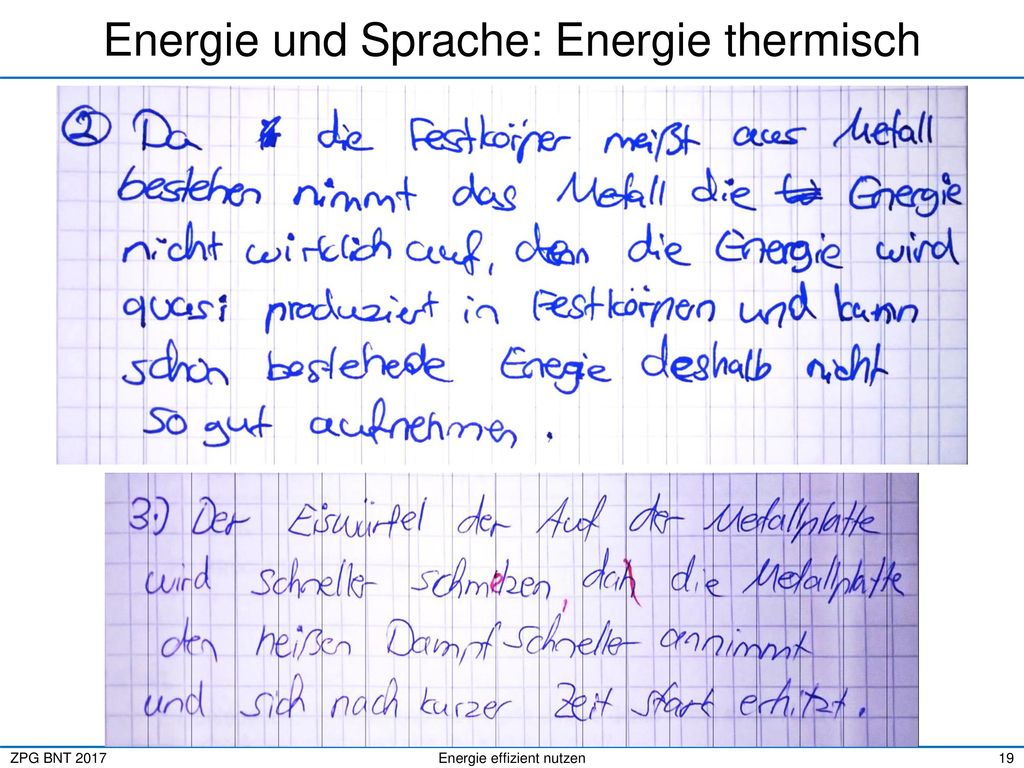 Energie und Sprache: Energie thermisch
② Da die Festkörper meißt aus Metall
bestehen nimmt das Metall die Energie
nicht wirklich auf, den die Energie wird
quasi produziert in Festkörpern und kann
schon bestehede Energie deshalb nicht
so gut aufnehmen.
3.) Der Eiswürfel der Auf der Metallplatte
wird schneller schmelzen, da die Metallplatte
den heißen Dampf schneller annimmt
und sich nach kurzer Zeit stark erhitzt.
ZPG BNT 2017
Energie effizient nutzen
19